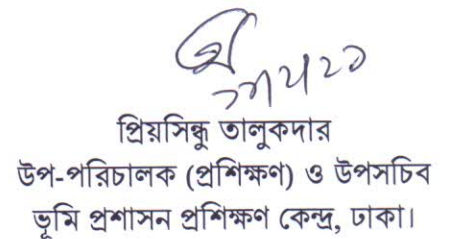 প্রিয়সিন্ধু তালুকদার
উপ-পরিচালক (প্রশিক্ষণ) ও উপসচিব
ভূমি প্রশাসন প্রশিক্ষণ কেন্দ্র, ঢাকা।